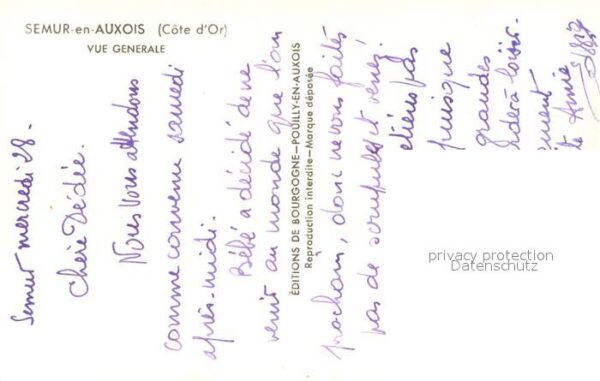 SEMUR-en-AUXOIS (Côte d'Or)
VUE GENERALE
Semur mercredi 28.
Chère Dédée.
Nous vous attendons
comme convenu samedi
après-midi.
Bébé a décidé de ne
venir au monde que l'an
prochain, donc ne vous faites
pas de scrupules et venez!
pas
puisque
grandes
ÉDITIONS DE BOURGOGNE—POUILLY-EN-AUXOIS
Reproduction interdite—Marque déposée
privacy protection
Datenschutz